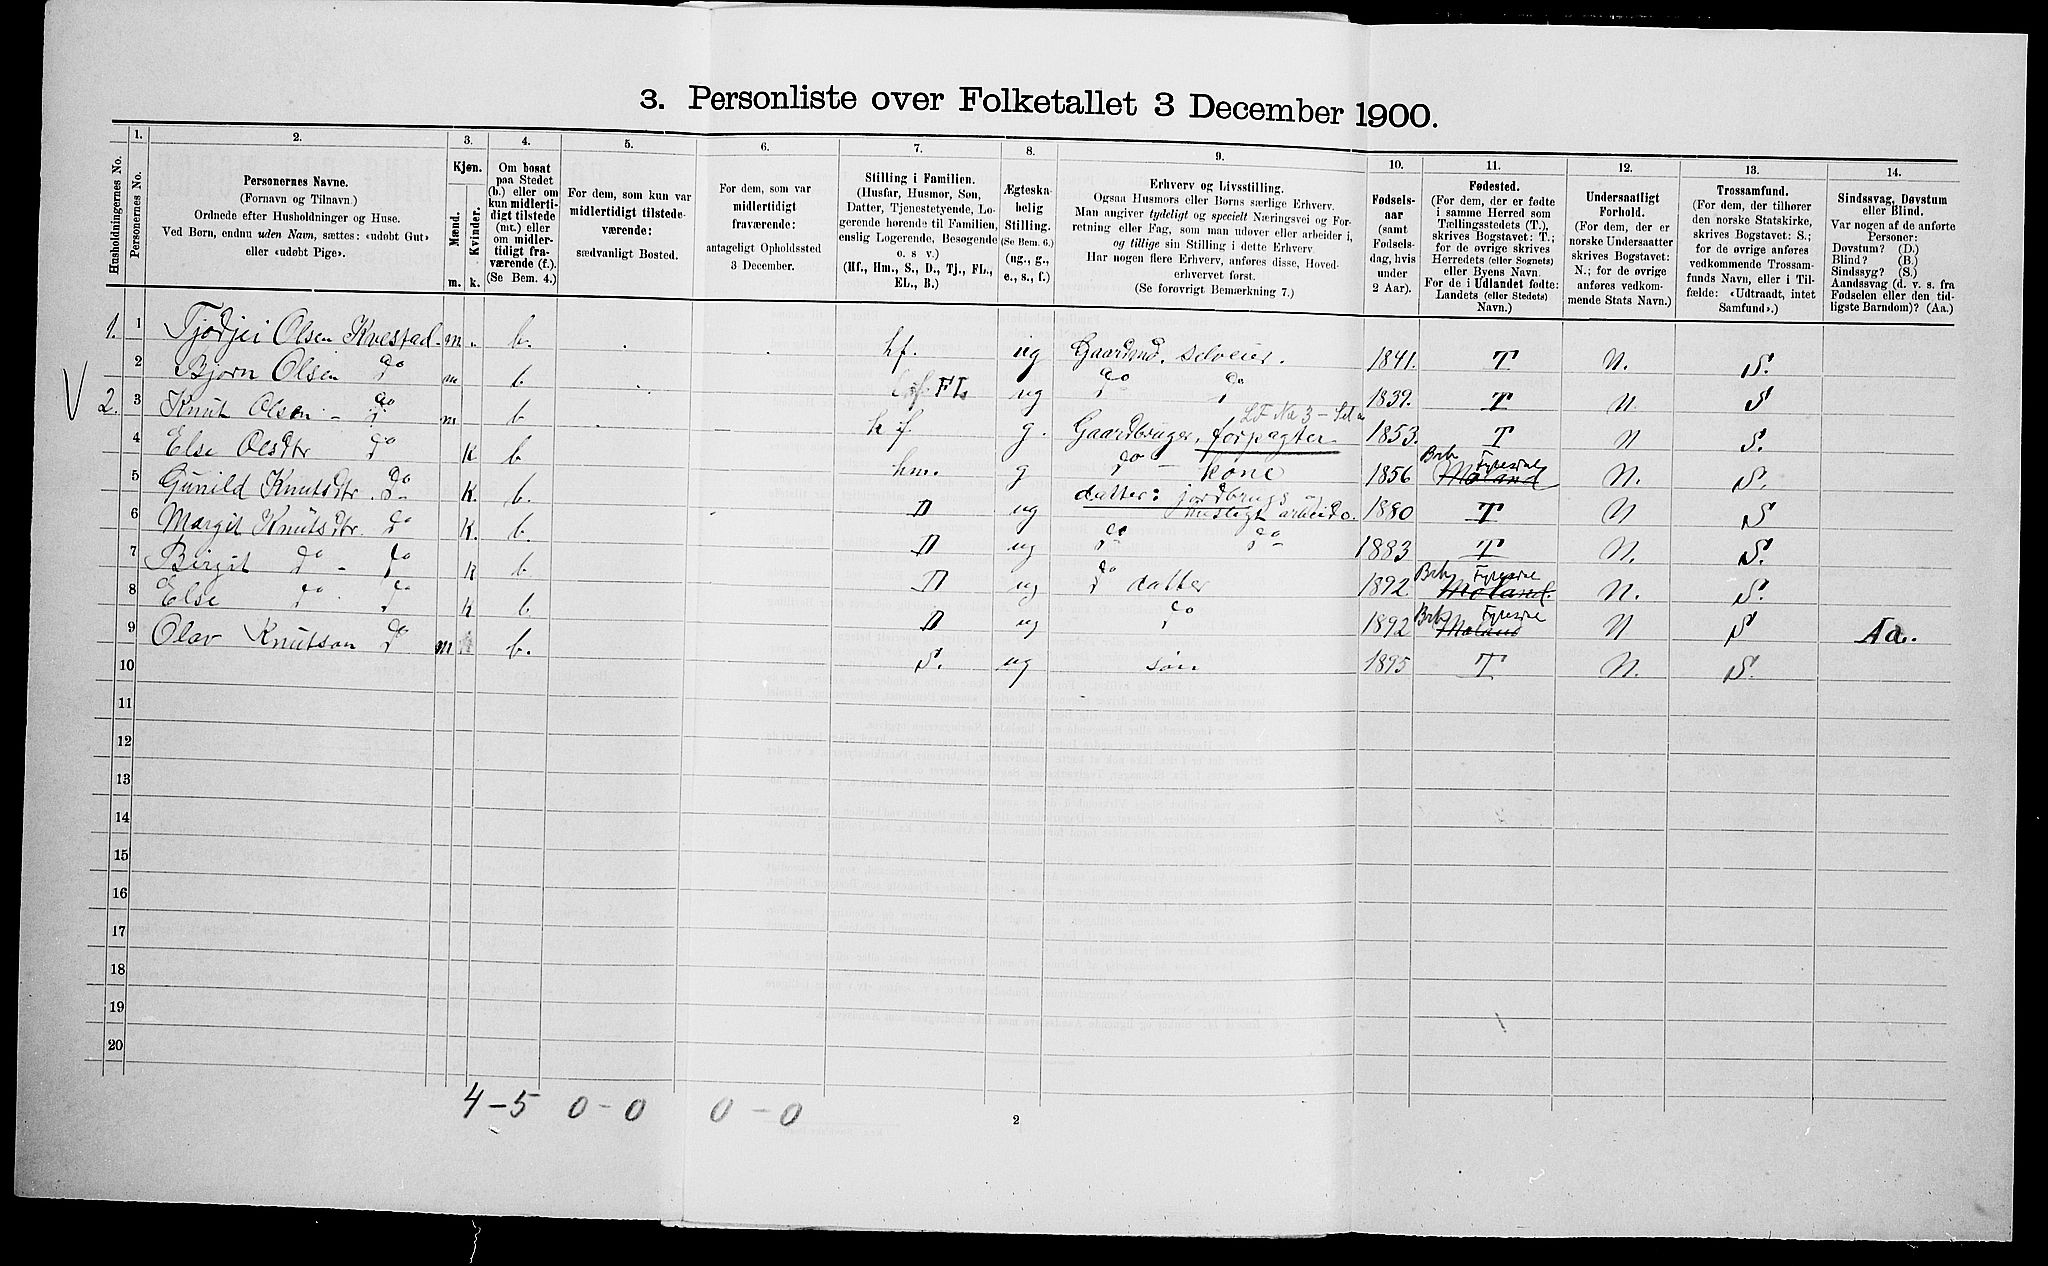 3. Personliste over Folketallet 3 December 1900.
1. 2. 3. 4. 5. 6. 7. 8. 9. 10. 11. 12. 13. 14.
Husholdningernes No.
Personernes No.
Personernes Navne.
(Fornavn og Tilnavn)
Ordnede efter Husholdninger og Huse.
Ved Børn, endnu uden Navn, sættes: «udøbt Gut»
eller «udøbt Pige».
Kjøn.
Mænd. Kvinder.
m. k.
Om bosat
paa Stedet
(b.) eller om
kun midlerti-
digt tilstede
(mt.) eller
om midler-
tidigt fra-
værende (f.).
(Se Bem. 4.)
For dem, som kun var
midlertidigt tilstede-
værende:
sædvanligt Bosted.
For dem, som var
midlertidigt
fraværende:
antageligt Opholdssted
3 December.
Stilling i Familien.
(Husfar, Husmor, Søn,
Datter, Tjenestetyende, Lo-
gerende hørende til Familien,
enslig Logerende, Besøgende
o. s. v.)
(Hf., Hm., S., D., Tj., FL.,
EL., B.)
Ægteska-
belig
Stilling.
(Se Bem. 6.)
(ug., g.,
e., s., f.)
Erhverv og Livsstilling.
Ogsaa Husmors eller Børns særlige Erhverv.
Man angiver tydeligt og specielt Næringsvei og For-
retning eller Fag, som man udøver eller arbeider i,
og tillige sin Stilling i dette Erhverv.
Har nogen flere Erhverv, anføres disse, Hoved-
erhvervet først.
(Se forøvrigt Bemærkning 7.)
Fødsels-
aar
(samt
Fødsels-
dag, hvis
under
2 Aar).
Fødested.
(For dem, der er fødte
i samme Herred som
Tællingsstedets (T.),
skrives Bogstavet: T.;
for de øvrige skrives
Herredets (eller Sognets)
eller Byens Navn.
For de i Udlandet fødte:
Landets (eller Stedets)
Navn.)
Undersaatligt
Forhold.
(For dem, der er
norske Undersaatter
skrives Bogstavet:
N.; for de øvrige
anføres vedkom-
mende Stats Navn.)
Trossamfund.
(For dem, der tilhører
den norske Statskirke,
skrives Bogstavet: S.;
for de øvrige anføres
vedkommende Trossam-
funds Navn, eller i Til-
fælde: «Udtraadt, intet
Samfund».)
Sindssvag, Døvstum
eller Blind.
Var nogen af de anførte
Personer:
Døvstum? (D.)
Blind? (B.)
Sindssyg? (S.)
Aandssvag (d. v. s. fra
Fødselen eller den tid-
ligste Barndom)? (Aa.)
1. 1 Tjodjei Olsen Kvestad m. b. hf. ug Gaardbd. selveier. 1841. T N. S.
V 2 Bjørn Olsen do m b. FL ug do do 1839. T N S
2. 3 Knut Olsen - do m b hf g. Gaardbruger, forpagter LF No 3 - 1853. T N S.
4 Else Olsdtr do K b hm. g do - kone 1856 Moland Fyresdal N. S.
5 Gunild Knutsdtr. do K. b. D ug datter: jordbrugs og husligt arbeide. 1880 T N S
6 Margit Knutsdtr. do K. b. D ug do do 1883 T N. S.
7 Birgit do - do K b D ug do datter 1892 Moland. Fyresdal N. S.
8 Else do. do K b. D ug do 1892 Moland Fyresdal N S Aa.
9 Olav Knutson do m b. S. ug søn 1895 T N. S.
10
11
12
13
14
15
16
17
18
19
20
4 - 5 0 - 0 0 - 0
2